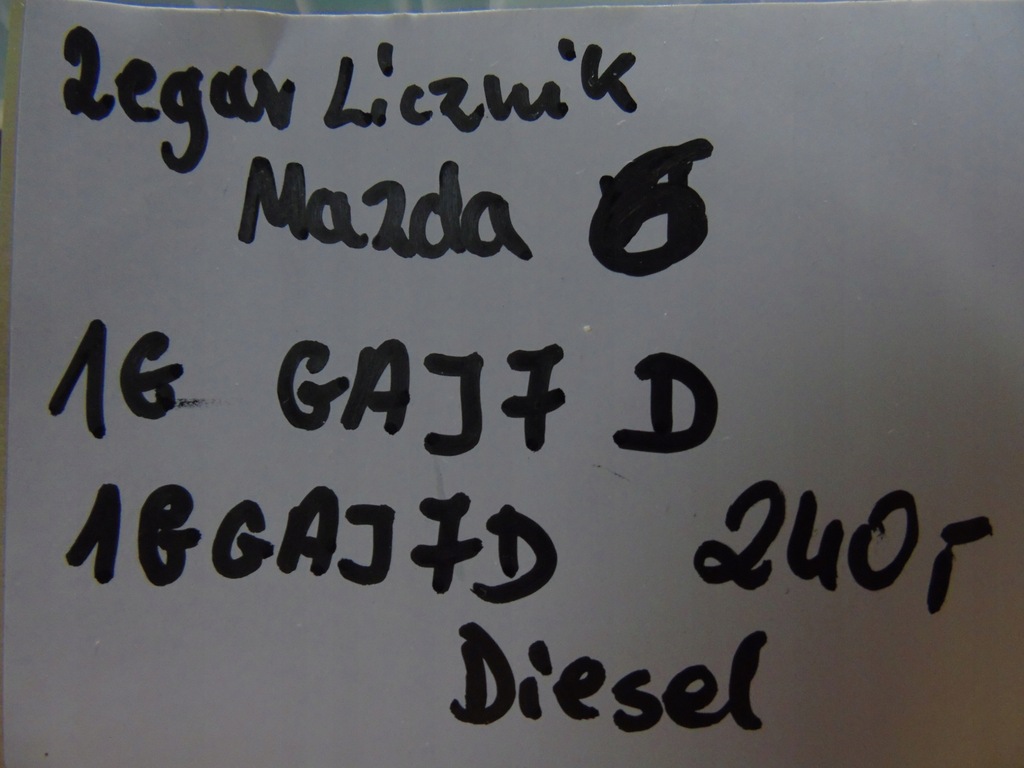 Zegar Licznik
Mazda 6
16 GAJ7 D
16GAJ7D 240,-
Diesel